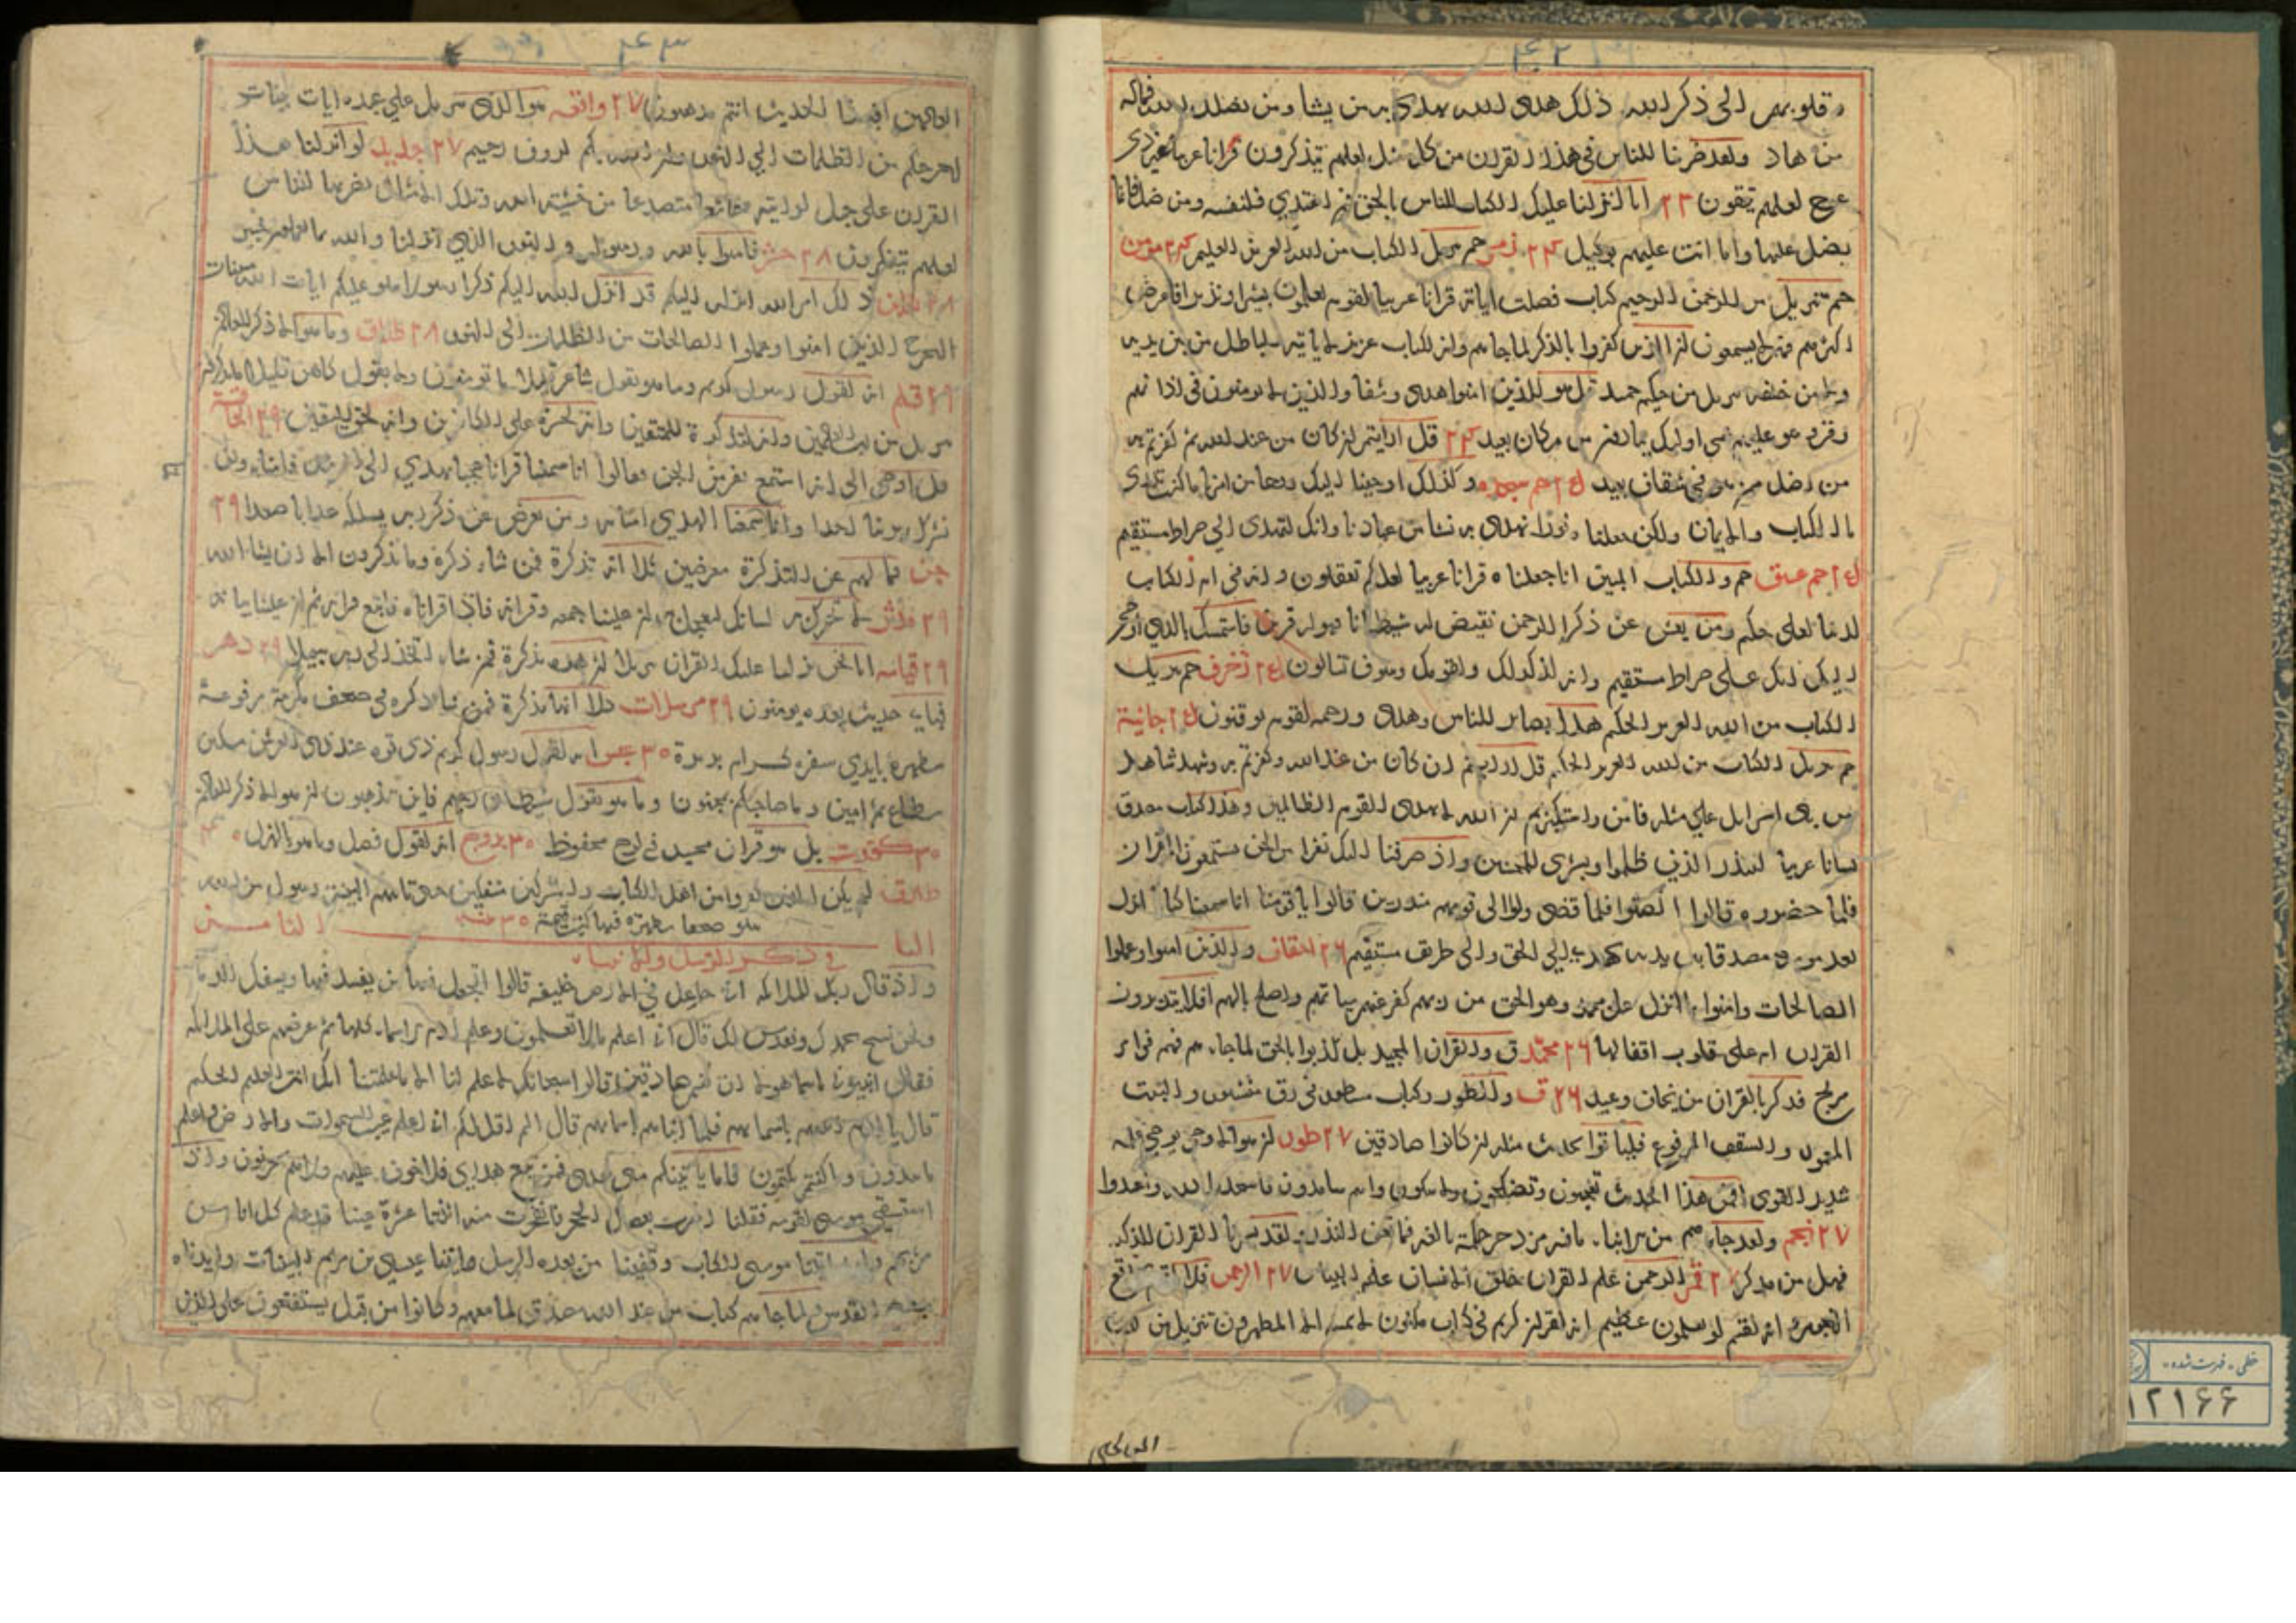 ۴۶۲
وقلوبهم الى ذكر الله ذلك هدى الله يهدى به من يشا ومن يضلل الله فماله
من هاد ولقد ضربنا للناس فى هذا القران من كل مثل لعلهم يتذكرون قرانا عربيا غير ذى
عوج لعلهم يتقون ۲۳ انا انزلنا عليك الكتاب للناس بالحق فمن اهتدي فلنفسه ومن ضل فانما
يضل عليها وما انت عليهم بوكيل ۲۴ زمر حم تنزيل الكتاب من الله العزيز العليم ۲۴ مؤمن
حم تنزيل من الرحمن الرحيم كتاب فصلت اياته قرانا عربيا لقوم يعلمون بشيرا ونذيرا فاعرض
اكثرهم فهم لا يسمعون ان الذين كفروا بالذكر لما جاءهم وانه لكتاب عزيز لا ياتيه الباطل من بين يديه
ولا من خلفه تنزيل من حكيم حميد قل هو للذين امنوا هدى وشفا والذين لا يومنون فى اذانهم
وقر وهو عليهم عمى اولئك ينادون من مكان بعيد ۲۴ قل ارايتم ان كان من عند الله ثم كفرتم به
من اضل ممن هو فى شقاق بعيد حم سجده وكذلك اوحينا اليك روحا من امرنا ما كنت تدرى
ما الكتاب ولا الايمان ولكن جعلناه نورا نهدى به من نشا من عبادنا وانك لتهدى الي صراط مستقيم
حم عسق حم والكتاب المبين انا جعلناه قرانا عربيا لعلكم تعقلون وانه فى ام الكتاب
لدينا لعلى حكيم ومن يعش عن ذكر الرحمن نقيض له شيطانا فهو له قرين فاستمسك بالذي اوحى
اليك انك على صراط مستقيم وانه لذكر لك ولقومك وسوف تسالون زخرف حم تنزيل
الكتاب من الله العزيز الحكيم هذا بصائر للناس وهدى ورحمه لقوم يوقنون جاثية
حم تنزيل الكتاب من الله العزيز الحكيم قل ارايتم ان كان من عند الله وكفرتم به وشهد شاهد
من بنى اسرايل علي مثله فامن واستكبرتم ان الله لا يهدى القوم الظالمين وهذا كتاب مصدق
لسانا عربيا لينذر الذين ظلموا وبشرى للمحسنين واذ صرفنا اليك نفرا من الجن يستمعون القران
فلما حضروه قالوا انصتوا فلما قضى ولوا الى قومهم منذرين قالوا يا قومنا انا سمعنا كتابا انزل
بعد موسى مصدقا لما بين يديه يهدى الي الحق والى طريق مستقيم ۲۶ احقاف والذين امنوا وعملوا
الصالحات وامنوا بما انزل على محمد وهو الحق من ربهم كفر عنهم سياتهم واصلح بالهم افلا يتدبرون
القران ام على قلوب اقفالها ۲۶ محمد ق والقران المجيد بل كذبوا بالحق لما جاءهم فهم فى امر
مريج فذكر بالقران من يخاف وعيد ۲۶ ق والطور وكتاب مسطور فى رق منشور والبيت
المعمور والسقف المرفوع فلياتوا بحديث مثله ان كانوا صادقين ۲۷ طور ان هو الا وحى يوحى علمه
شديد القوى افمن هذا الحديث تعجبون وتضحكون ولا تبكون وانتم سامدون فاسجدوا لله واعبدوا
۲۷ نجم ولقد جاءهم من الانباء ما فيه مزدجر حكمة بالغه فما تغن النذر ولقد يسرنا القران للذكر
فهل من مدكر ۲۷ قمر الرحمن علم القران خلق الانسان علمه البيان ۲۷ الرحمن فلا اقسم بمواقع
النجوم وانه لقسم لو تعلمون عظيم انه لقران كريم فى كتاب مكنون لا يمسه الا المطهرون تنزيل من رب
العالمين
۴۶۳
العالمين افبهذا الحديث انتم مدهنون ۲۷ واقعه هو الذى ينزل على عبده ايات بينات
ليخرجكم من الظلمات الي النور وان الله بكم لروف رحيم ۲۷ حديد لو انزلنا هذا
القران على جبل لرايته خاشعا متصدعا من خشية الله وتلك الامثال نضربها للناس
لعلهم يتفكرون ۲۸ حشر فامنوا بالله ورسوله والنور الذي انزلنا والله بما تعملون خبير
۲۸ تغابن ذلك امر الله انزله اليكم قد انزل الله اليكم ذكرا رسولا يتلو عليكم ايات الله مبينات
ليخرج الذين امنوا وعملوا الصالحات من الظلمات الى النور ۲۸ طلاق وما هو الا ذكر للعالمين
۲۹ قلم انه لقول رسول كريم وما هو بقول شاعر قليلا ما تومنون ولا بقول كاهن قليلا ما تذكرون
تنزيل من رب العالمين وانه لتذكرة للمتقين وانه لحسرة على الكافرين وانه لحق اليقين ۲۹ الحاقة
قل اوحى الى انه استمع نفر من الجن فقالوا انا سمعنا قرانا عجبا يهدي الى الرشد فامنا به ولن
نشرك بربنا احدا وانا لما سمعنا الهدي امنا به ومن يعرض عن ذكر ربه يسلكه عذابا صعدا ۲۹
جن فما لهم عن التذكرة معرضين كلا انه تذكرة فمن شاء ذكره وما يذكرون الا ان يشاء الله
۲۹ مدثر لا تحرك به لسانك لتعجل به ان علينا جمعه وقرانه فاذا قراناه فاتبع قرانه ثم ان علينا بيانه
۲۹ قيامه انا نحن نزلنا عليك القران تنزيلا ان هذه تذكرة فمن شاء اتخذ الى ربه سبيلا ۲۹ دهر
فباي حديث بعده يومنون ۲۹ مرسلات كلا انها تذكرة فمن شاء ذكره فى صحف مكرمة مرفوعة
مطهرة بايدي سفرة كرام بررة ۳۰ عبس انه لقول رسول كريم ذى قوه عند ذى العرش مكين
مطاع ثم امين وما صاحبكم بمجنون وما هو بقول شيطان رجيم فاين تذهبون ان هو الا ذكر للعالمين
۳۰ كورت بل هو قران مجيد فى لوح محفوظ ۳۰ بروج انه لقول فصل وما هو بالهزل ۳۰
طارق لم يكن الذين كفروا من اهل الكتاب والمشركين منفكين حتى تاتيهم البينة رسول من الله
يتلو صحفا مطهرة فيها كتب قيمة ۳۰ بينه
الباب الثامن
فى ذكر الرسل والانبياء
واذ قال ربك للملائكه انى جاعل في الارض خليفه قالوا اتجعل فيها من يفسد فيها ويسفك الدماء
ونحن نسبح بحمدك ونقدس لك قال انى اعلم ما لا تعلمون وعلم ادم الاسماء كلها ثم عرضهم على الملائكه
فقال انبئونى باسماء هولاء ان كنتم صادقين قالوا سبحانك لا علم لنا الا ما علمتنا انك انت العليم الحكيم
قال يا ادم انبئهم باسمائهم فلما انباهم باسمائهم قال الم اقل لكم انى اعلم غيب السموات والارض واعلم
ما تبدون وما كنتم تكتمون فاما ياتينكم منى هدى فمن تبع هداي فلا خوف عليهم ولا هم يحزنون واذ
استسقى موسى لقومه فقلنا اضرب بعصاك الحجر فانفجرت منه اثنتا عشرة عينا قد علم كل اناس
مشربهم ولقد اتينا موسى الكتاب وقفينا من بعده بالرسل واتينا عيسى بن مريم البينات وايدناه
بروح القدس ولما جاءهم كتاب من عند الله مصدق لما معهم وكانوا من قبل يستفتحون على الذين
خطى - فهرست شده
۱۲۱۶۶